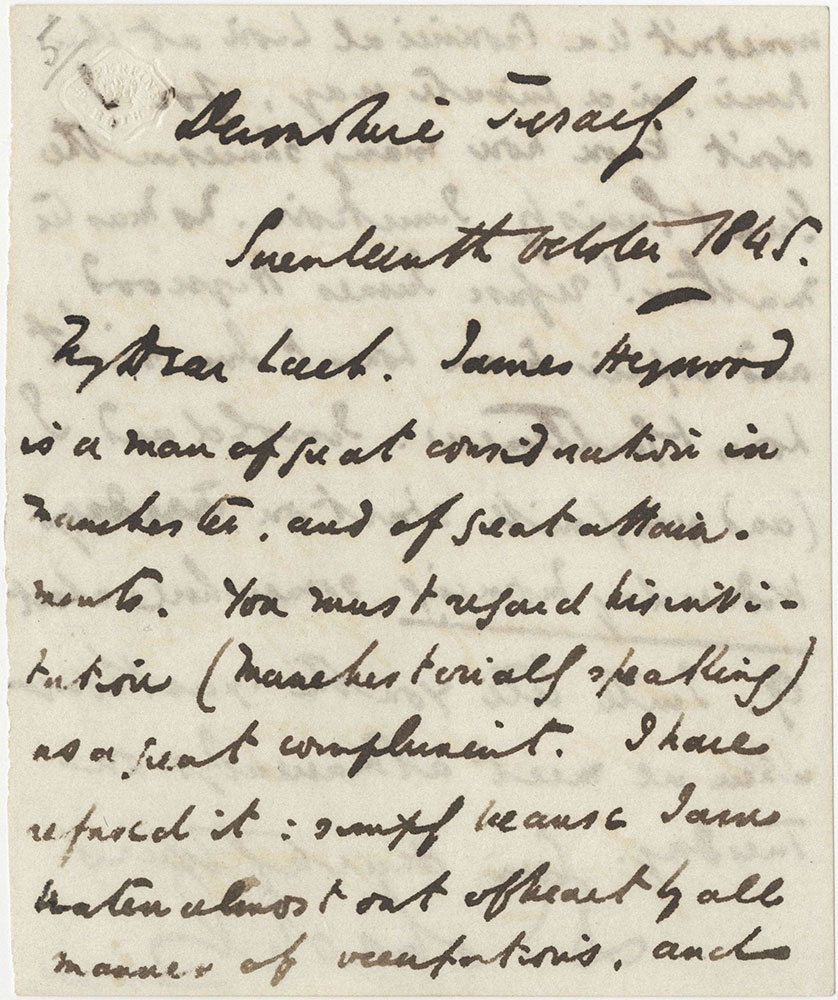 Devonshire Terrace
Seventeenth October 1845.
My Dear Leech. James Heywood
is a man of great consideration in
Manchester, and of great attain-
ments. You must regard his invi-
tation (Manchesterially speaking)
as a great compliment. I have
refused it: simply because I am
beaten almost out of heart by all
manner of occupations, and